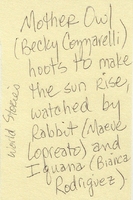 Mother Owl
(Becky Commarelli)
hoots to make
the sun rise,
watched by
Rabbit (Maeve
Lopreato) and
Iguana (Bianca
Rodriguez).
World Stories